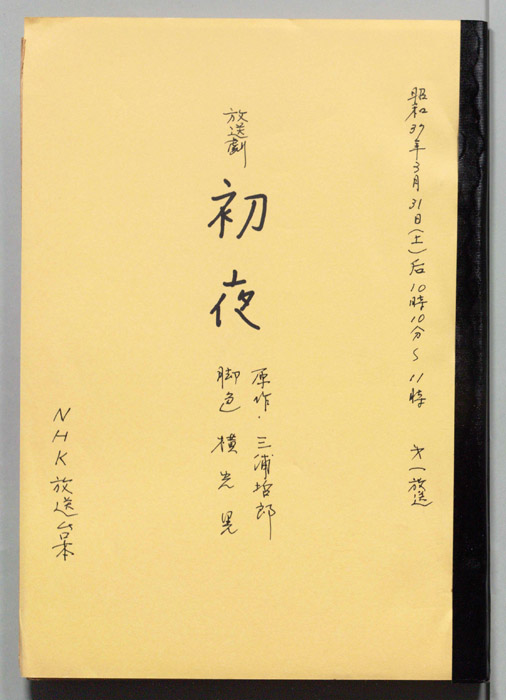 昭和37年3月31日(土)后10時10分〜11時 第一放送
放送劇
初夜
原作・三浦哲郎
脚色 横光晃
NHK放送台本